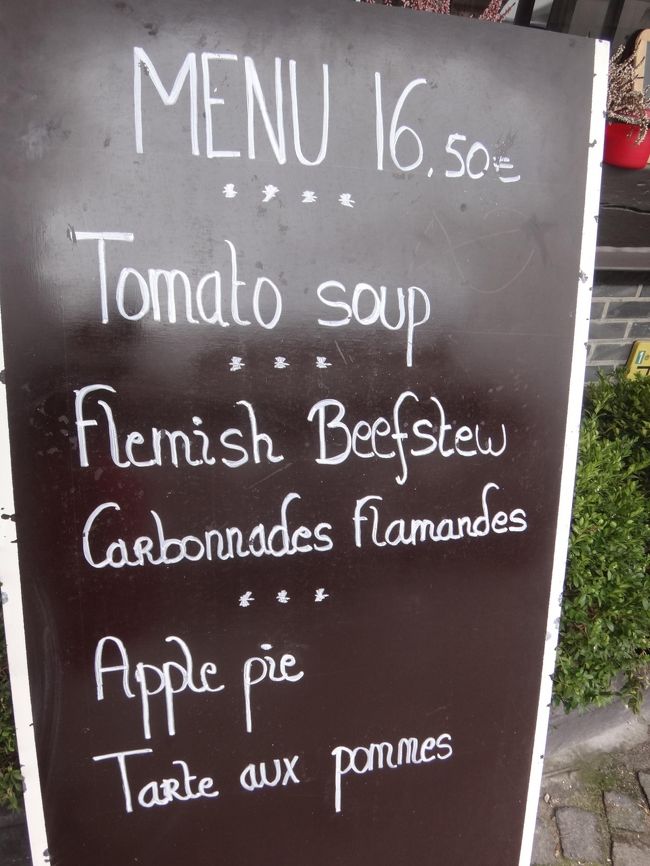 MENU 16.50 €
****
Tomato soup
***
Flemish Beefstew
Carbonnades Flamandes
***
Apple pie
Tarte aux pommes